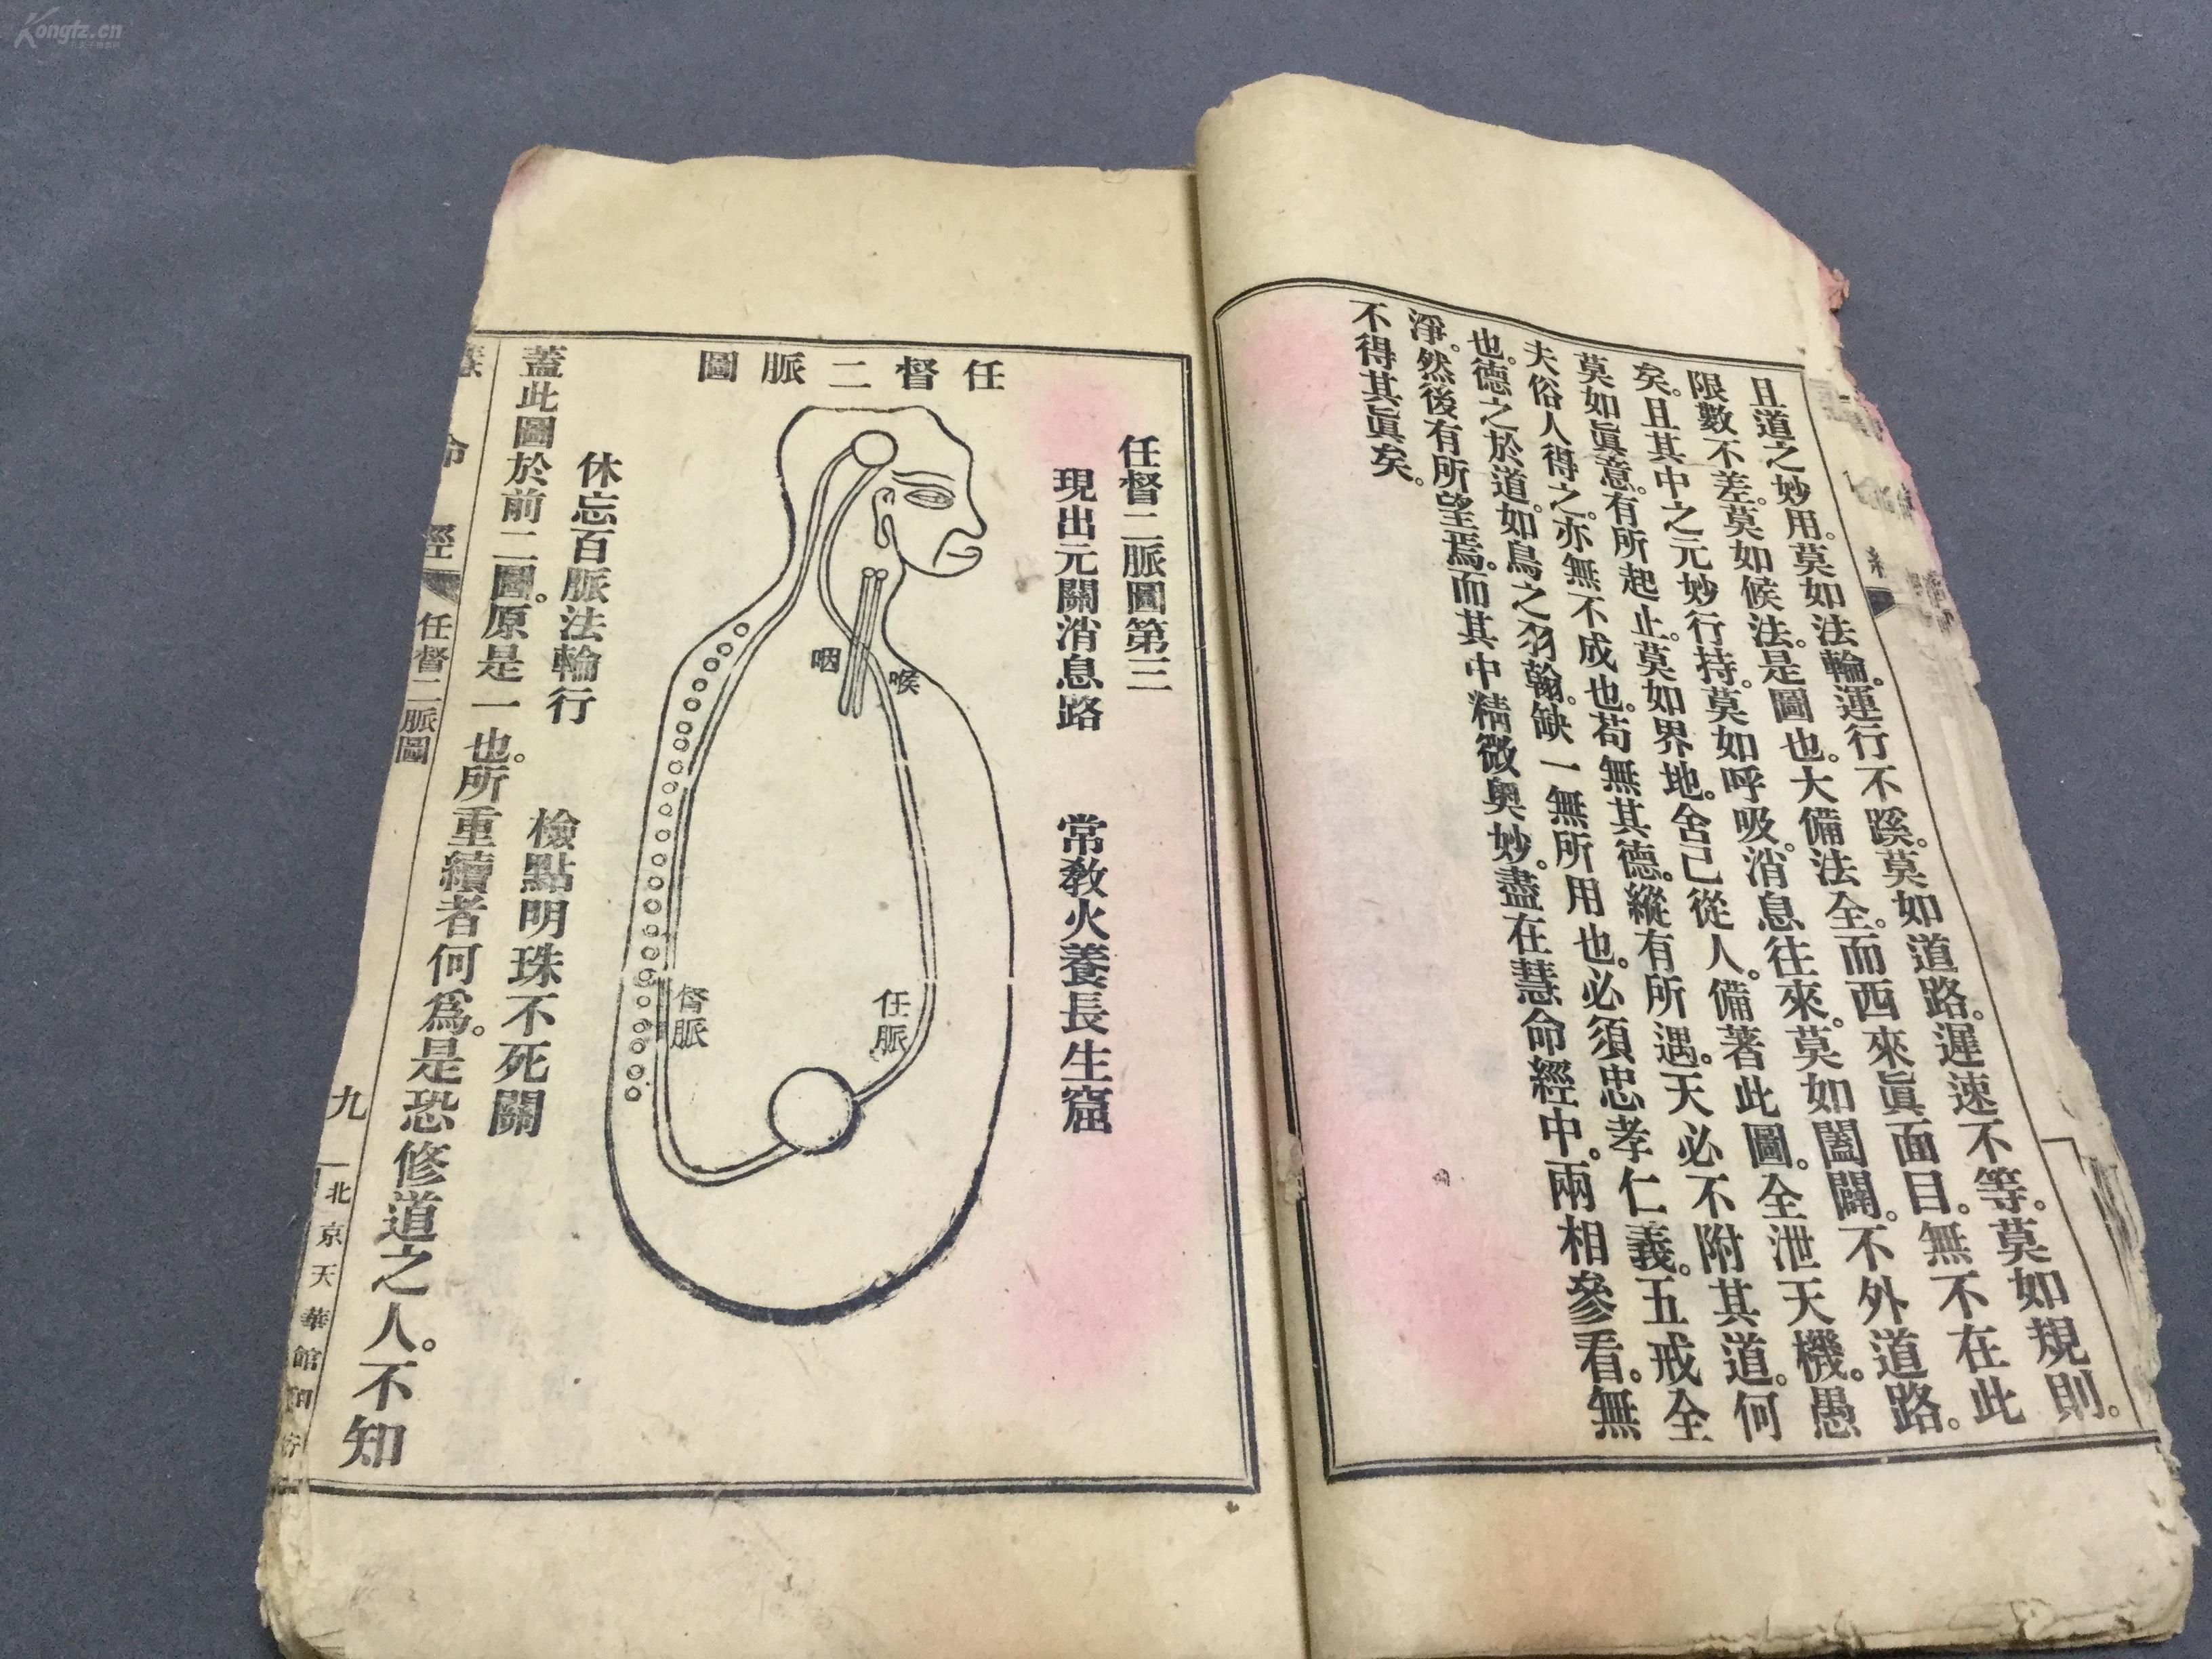 Kongfz.cn
且道之妙用。莫如法輪。運行不蹊。莫如道路。遲速不等。莫如規則。
限數不差。莫如候法。是圖也。大備法全。而西來眞面目。無不在此
矣。且其中之元妙行持。莫如呼吸。消息往來。莫如闔闢。不外道路。
莫如眞意。有所起止。莫如界地。舍己從人。備著此圖。全泄天機。愚
夫俗人得之。亦無不成也。苟無其德。縱有所遇。天必不附其道。何
也。德之於道。如鳥之羽翰。缺一無所用也。必須忠孝仁義。五戒全
淨。然後有所望焉。而其中精微奧妙。盡在慧命經中。兩相參看。無
不得其眞矣。
任督二脈圖第三
現出元關消息路 常教火養長生窟
任督二脈圖
咽
喉
督脈
任脈
休忘百脈法輪行 檢點明珠不死關
蓋此圖於前二圖。原是一也。所重續者何爲。是恐修道之人。不知
命 經 任督二脈圖 九 北京天華館印